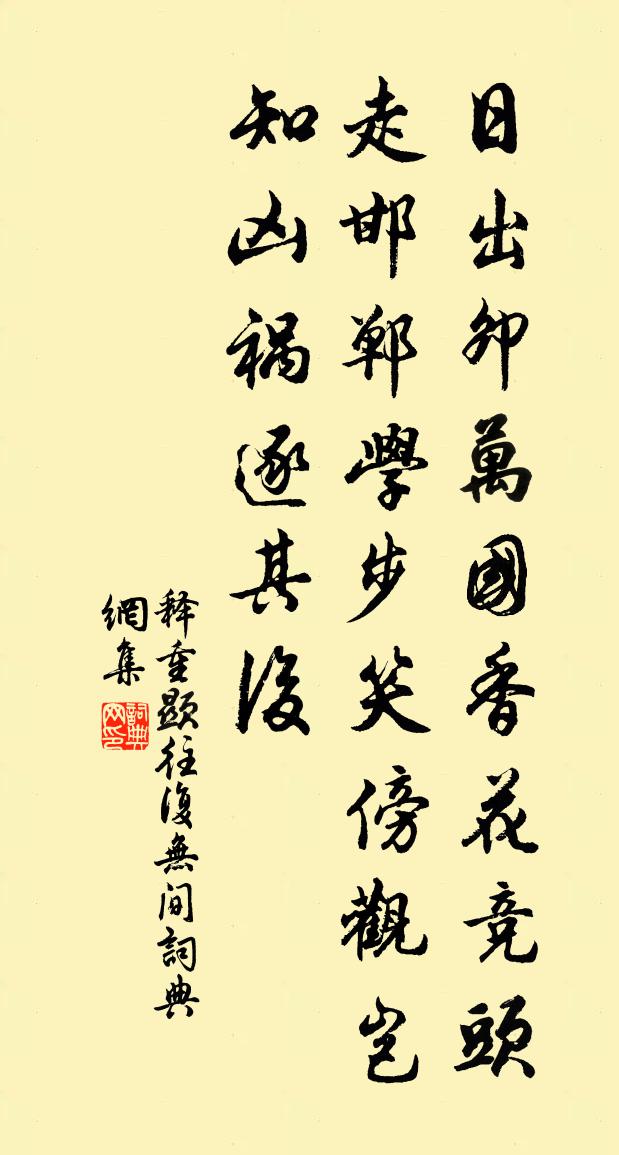 日出卯萬國香花竞頭
走邯鄲學步笑傍觀岂
知凶禍逐其後
释重顯往復無間詞典
網集
詞典網印